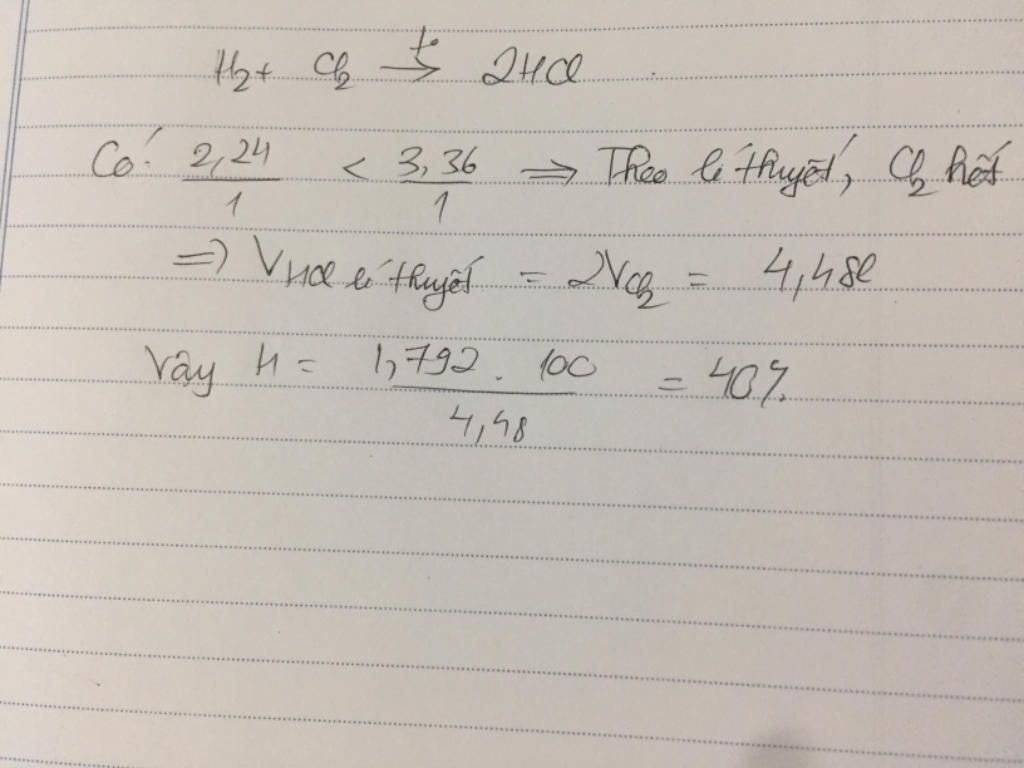 H₂ + Cl₂ →t° 2HCl
Có: 2,24/1 < 3,36/1 ⇒ Theo lí thuyết, Cl₂ hết
⇒ VHCl lí thuyết = 2VCl₂ = 4,48l
Vậy H = 1,792 . 100 / 4,48 = 40%.